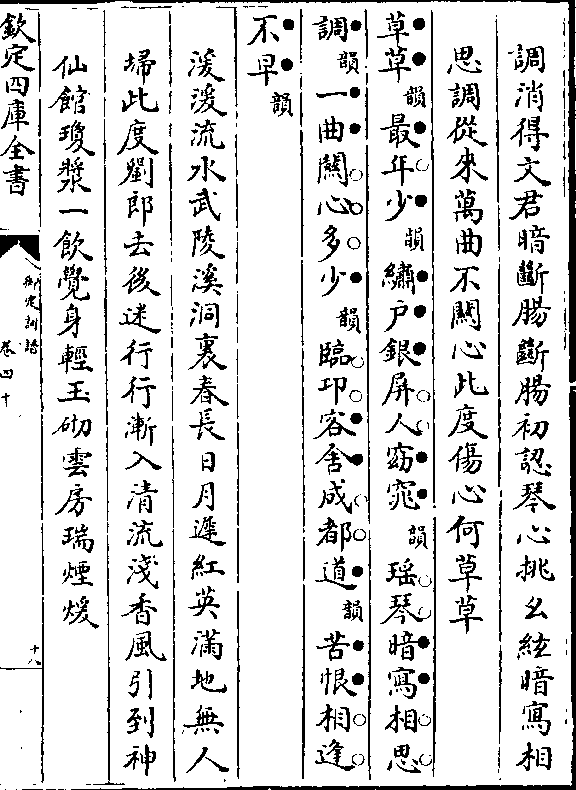 調消得文君暗斷腸斷腸初認琴心挑么絃暗寫相
思調從來萬曲不關心此度傷心何草草
草草韻最年少韻繡户銀屏人窈窕韻瑶琴暗寫相思
調韻一曲關心多少韻臨卭客舍成都道韻苦恨相逢
不早韻
湲湲流水武陵溪洞裏春長日月遲紅英滿地無人
埽此度劉郎去後迷行行漸入清流淺香風引到神
仙館瓊漿一飲覺身輕玉砌雲房瑞煙煖
欽定四庫全書
御定詞譜
卷四十
十八